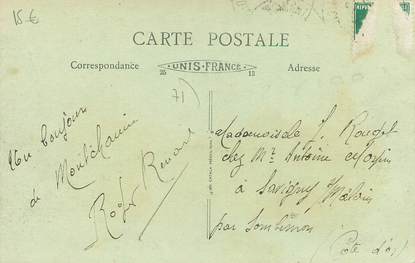 15 €
CARTE POSTALE
Correspondance
25 UNIS-FRANCE 13
Adresse
71)
Un bonjour
de Montchanin
Roger Renard
Mademoiselle J.
chez Mr Antoine
à Savigny s/ Mâlain
par Sombernon
(Côte d'or)